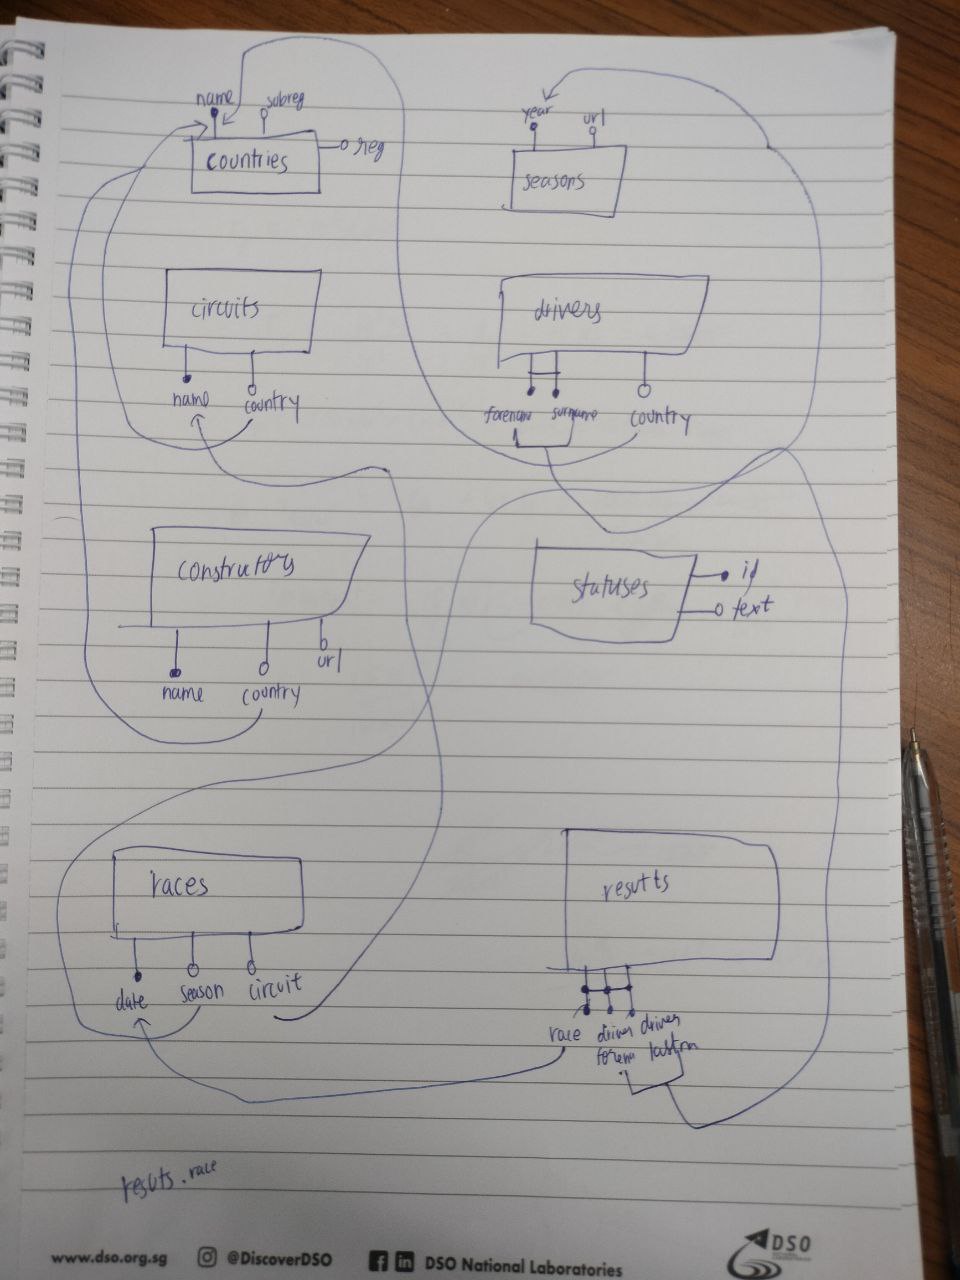 name
subreg
countries
reg
year
url
seasons
circuits
name
country
drivers
forename
surname
country
constructors
name
country
url
statuses
id
text
races
date
season
circuit
results
race
driver driver
forena lastnn
resuts.race
www.dso.org.sg
@DiscoverDSO
DSO National Laboratories
DSO